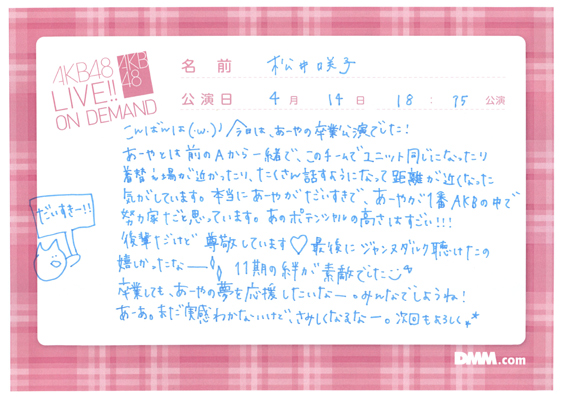 AKB48
LIVE!!
ON DEMAND
AKB
48
名前 松井咲子
公演日 4月 14日 18:15 公演
こんばんは(・ω・)ノ 今日は、あーやの卒業公演でした!
あーやとは前のAから一緒で、このチームでユニット同じになったり
着替える場が近かったり、たくさん話すようになって距離が近くなった
気がしています。本当にあーやがだいすきで、あーやが1番AKBの中で
努力家だと思っています。あのポテンシャルの高さはすごい!!!
後輩だけど尊敬しています♡最後にジャンヌダルク聴けたの
嬉しかったなーー 11期の絆が素敵でした
卒業しても、あーやの夢を応援したいなー。みんなでしようね!
あーあ。まだ実感わかないけど、さみしくなるなー。次回もよろしく
だいすきー!!
DMM.com